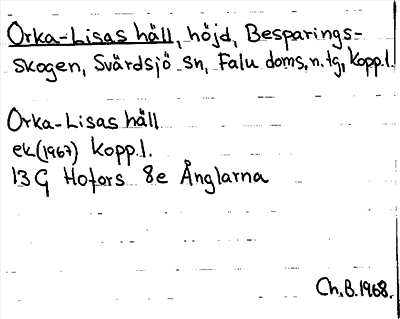 Orka-Lisas häll, höjd, Besparings-
skogen, Svärdsjö sn, Falu doms.n.tg, Kopp.l.
Orka-Lisas häll
ek(1967) Kopp.l.
13 G Hofors 8e Änglarna
Ch.B.1968.